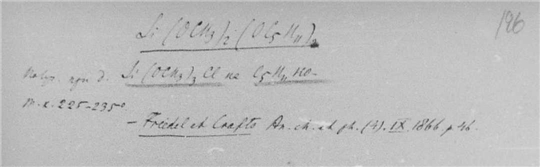 126
Si (OCH3)2 (OC5H11)2
Получ. при д. Si (OCH3)3 Cl на C5H11 HO –
т. к. 225–235°
– Friedel et Crafts An. ch. et ph. (4). IX. 1866 p 46.